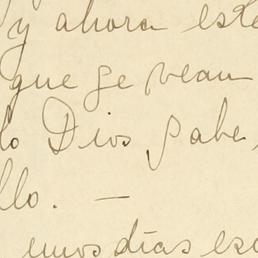 y ahora este
que se vean
lo Dios sabe,
llo. —
unos días esc